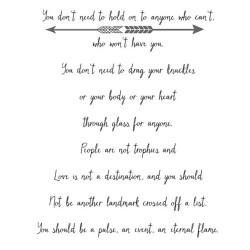 You don't need to hold on to anyone who can't,
who won't have you.
You don't need to drag your knuckles
or your body or your heart
through glass for anyone.
People are not trophies and
Love is not a destination, and you should
Not be another landmark crossed off a list.
You should be a pulse, an event, an eternal flame.